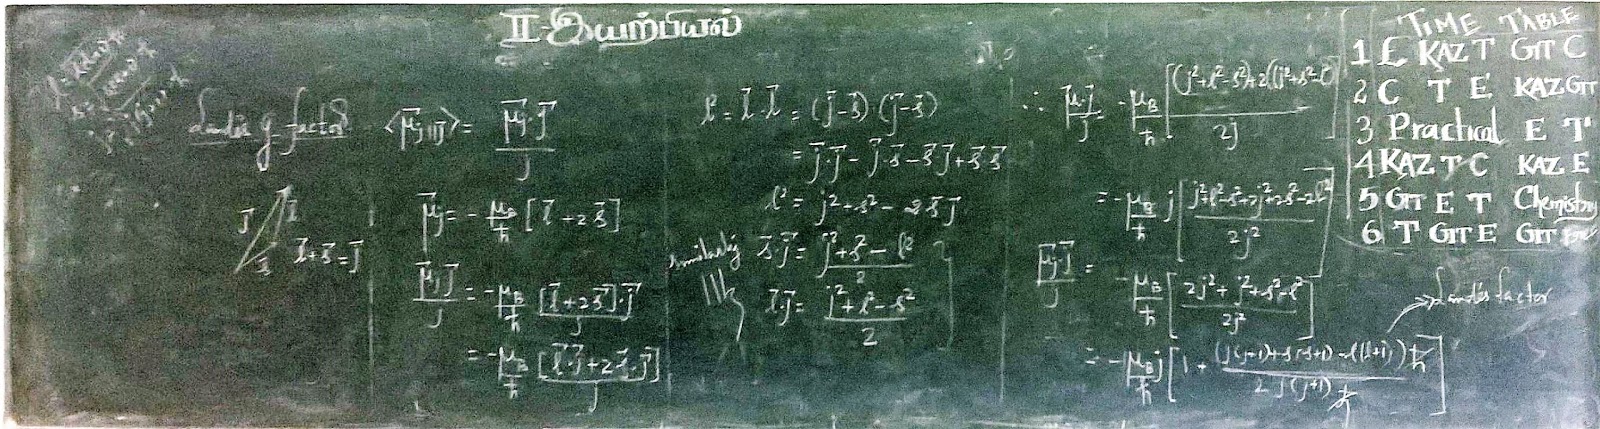 II-இயற்பியல்
Landé's g factor
J
l
s
l⃗+s⃗=J⃗
<μ⃗j||j> = μ⃗j·j⃗ / j
μ⃗j = -μB/ħ [l⃗+2s⃗]
μ⃗j J⃗ / J = -μB/ħ [l⃗+2s⃗]·j⃗ / j
= -μB/ħ [l⃗·j⃗+2s⃗·j⃗] / j
l² = l⃗·l⃗ = (j⃗-s⃗)·(j⃗-s⃗)
= j⃗·j⃗ - j⃗·s⃗ - s⃗·j⃗ + s⃗·s⃗
l² = j²+s² - 2s⃗j⃗
similarly s⃗·j⃗ = j²+s²-l² / 2
l⃗·j⃗ = j²+l²-s² / 2
∴ μ⃗·j⃗ / j = -μB/ħ [(j²+l²-s²)+2(j²+s²-l²) / 2j]
= -μB/ħ j [j²+l²-s²+2j²+2s²-2l² / 2j²]
μ⃗j·j⃗ / j = -μB/ħ [2j²+j²+s²-l² / 2j²]
→ Landé's factor
= -μB/ħ j [1 + (j(j+1)+s(s+1)-l(l+1))ħ / 2j(j+1)ħ]
TIME TABLE
1 E KAZ T GIT C
2 C T E KAZ GIT
3 Practical E T
4 KAZ T C KAZ E
5 GIT E T Chemistry
6 T GIT E GIT